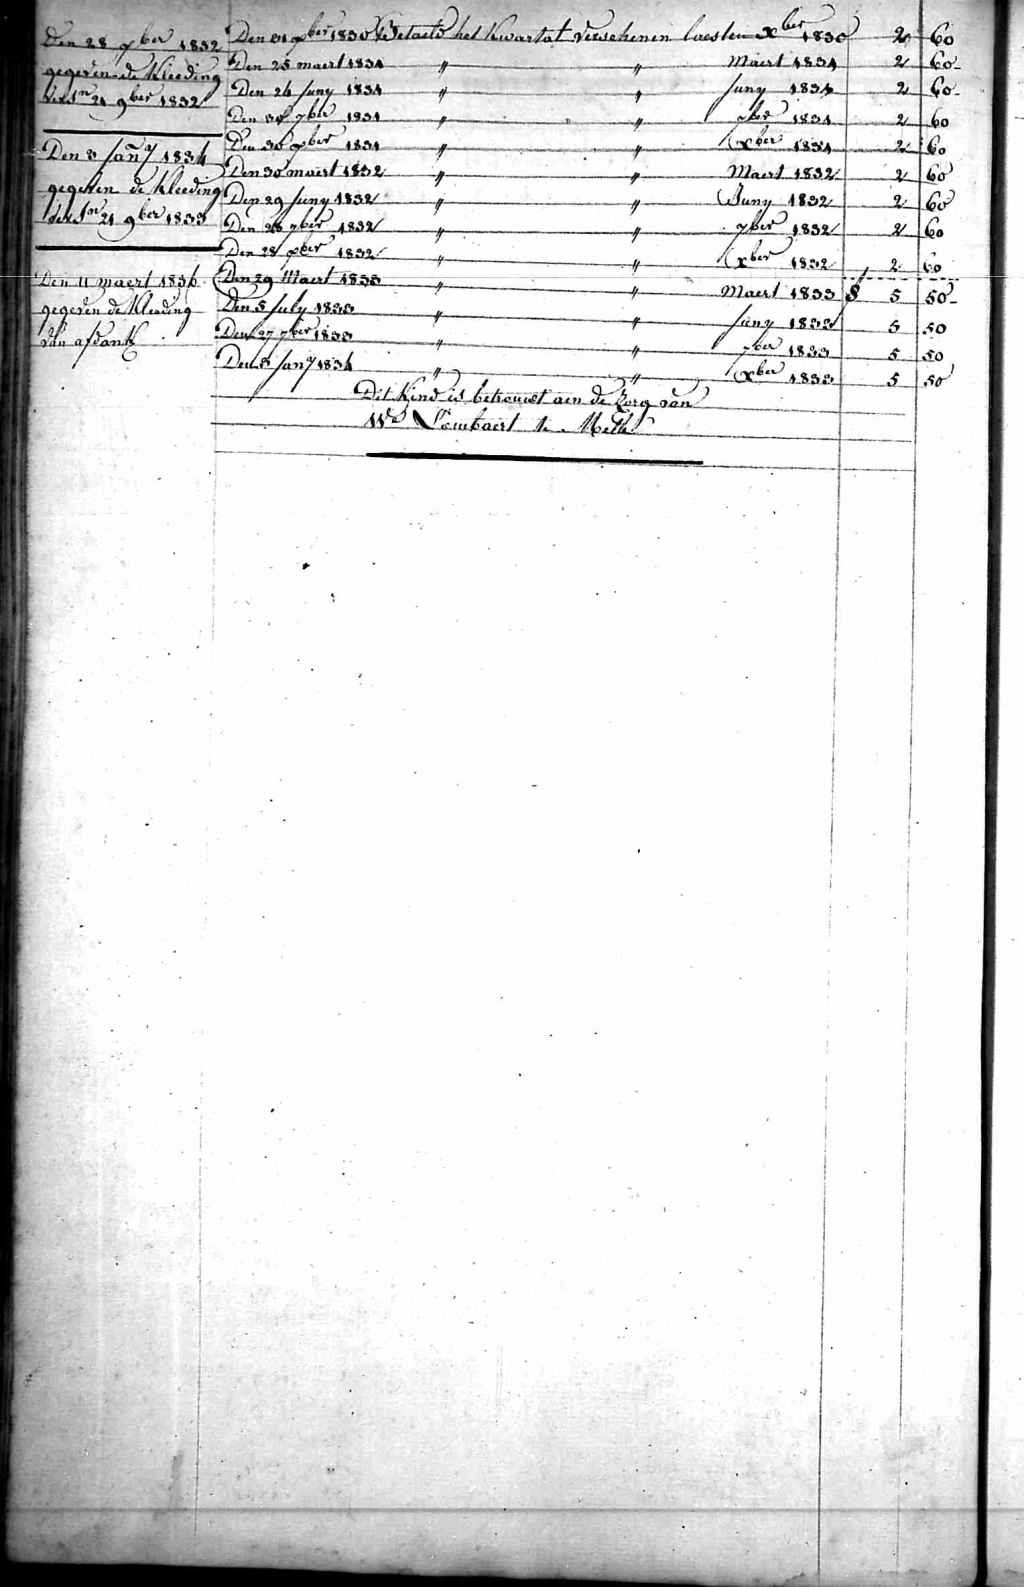 Den 28 xber 1832
gegeven de Kleeding
versn 21 9ber 1832
Den 8 Jany 1834
gegeven de Kleeding
versn 21 9ber 1833
Den 11 maert 1836
gegeven de Kleeding
van afdank
Den 31 xber 1830 Betaeld het Kwartat verschenen laesten xber 1830 2 60
Den 25 maert 1831 " " Maert 1831 2 60
Den 26 Juny 1831 " " Juny 1831 2 60
Den 30 7ber 1831 " " 7ber 1831 2 60
Den 30 xber 1831 " " xber 1831 2 60
Den 30 maert 1832 " " Maert 1832 2 60
Den 29 Juny 1832 " " Juny 1832 2 60
Den 28 7ber 1832 " " 7ber 1832 2 60
Den 28 xber 1832 " " xber 1832 2 60
Den 29 Maert 1833 " " Maert 1833 5 50
Den 5 July 1833 " " Juny 1833 5 50
Den 27 7ber 1833 " " 7ber 1833 5 50
Den 8 Jany 1834 " " xber 1833 5 50
Dit Kind is betrouwt aen de Zorg van
We Lombaert te Melle